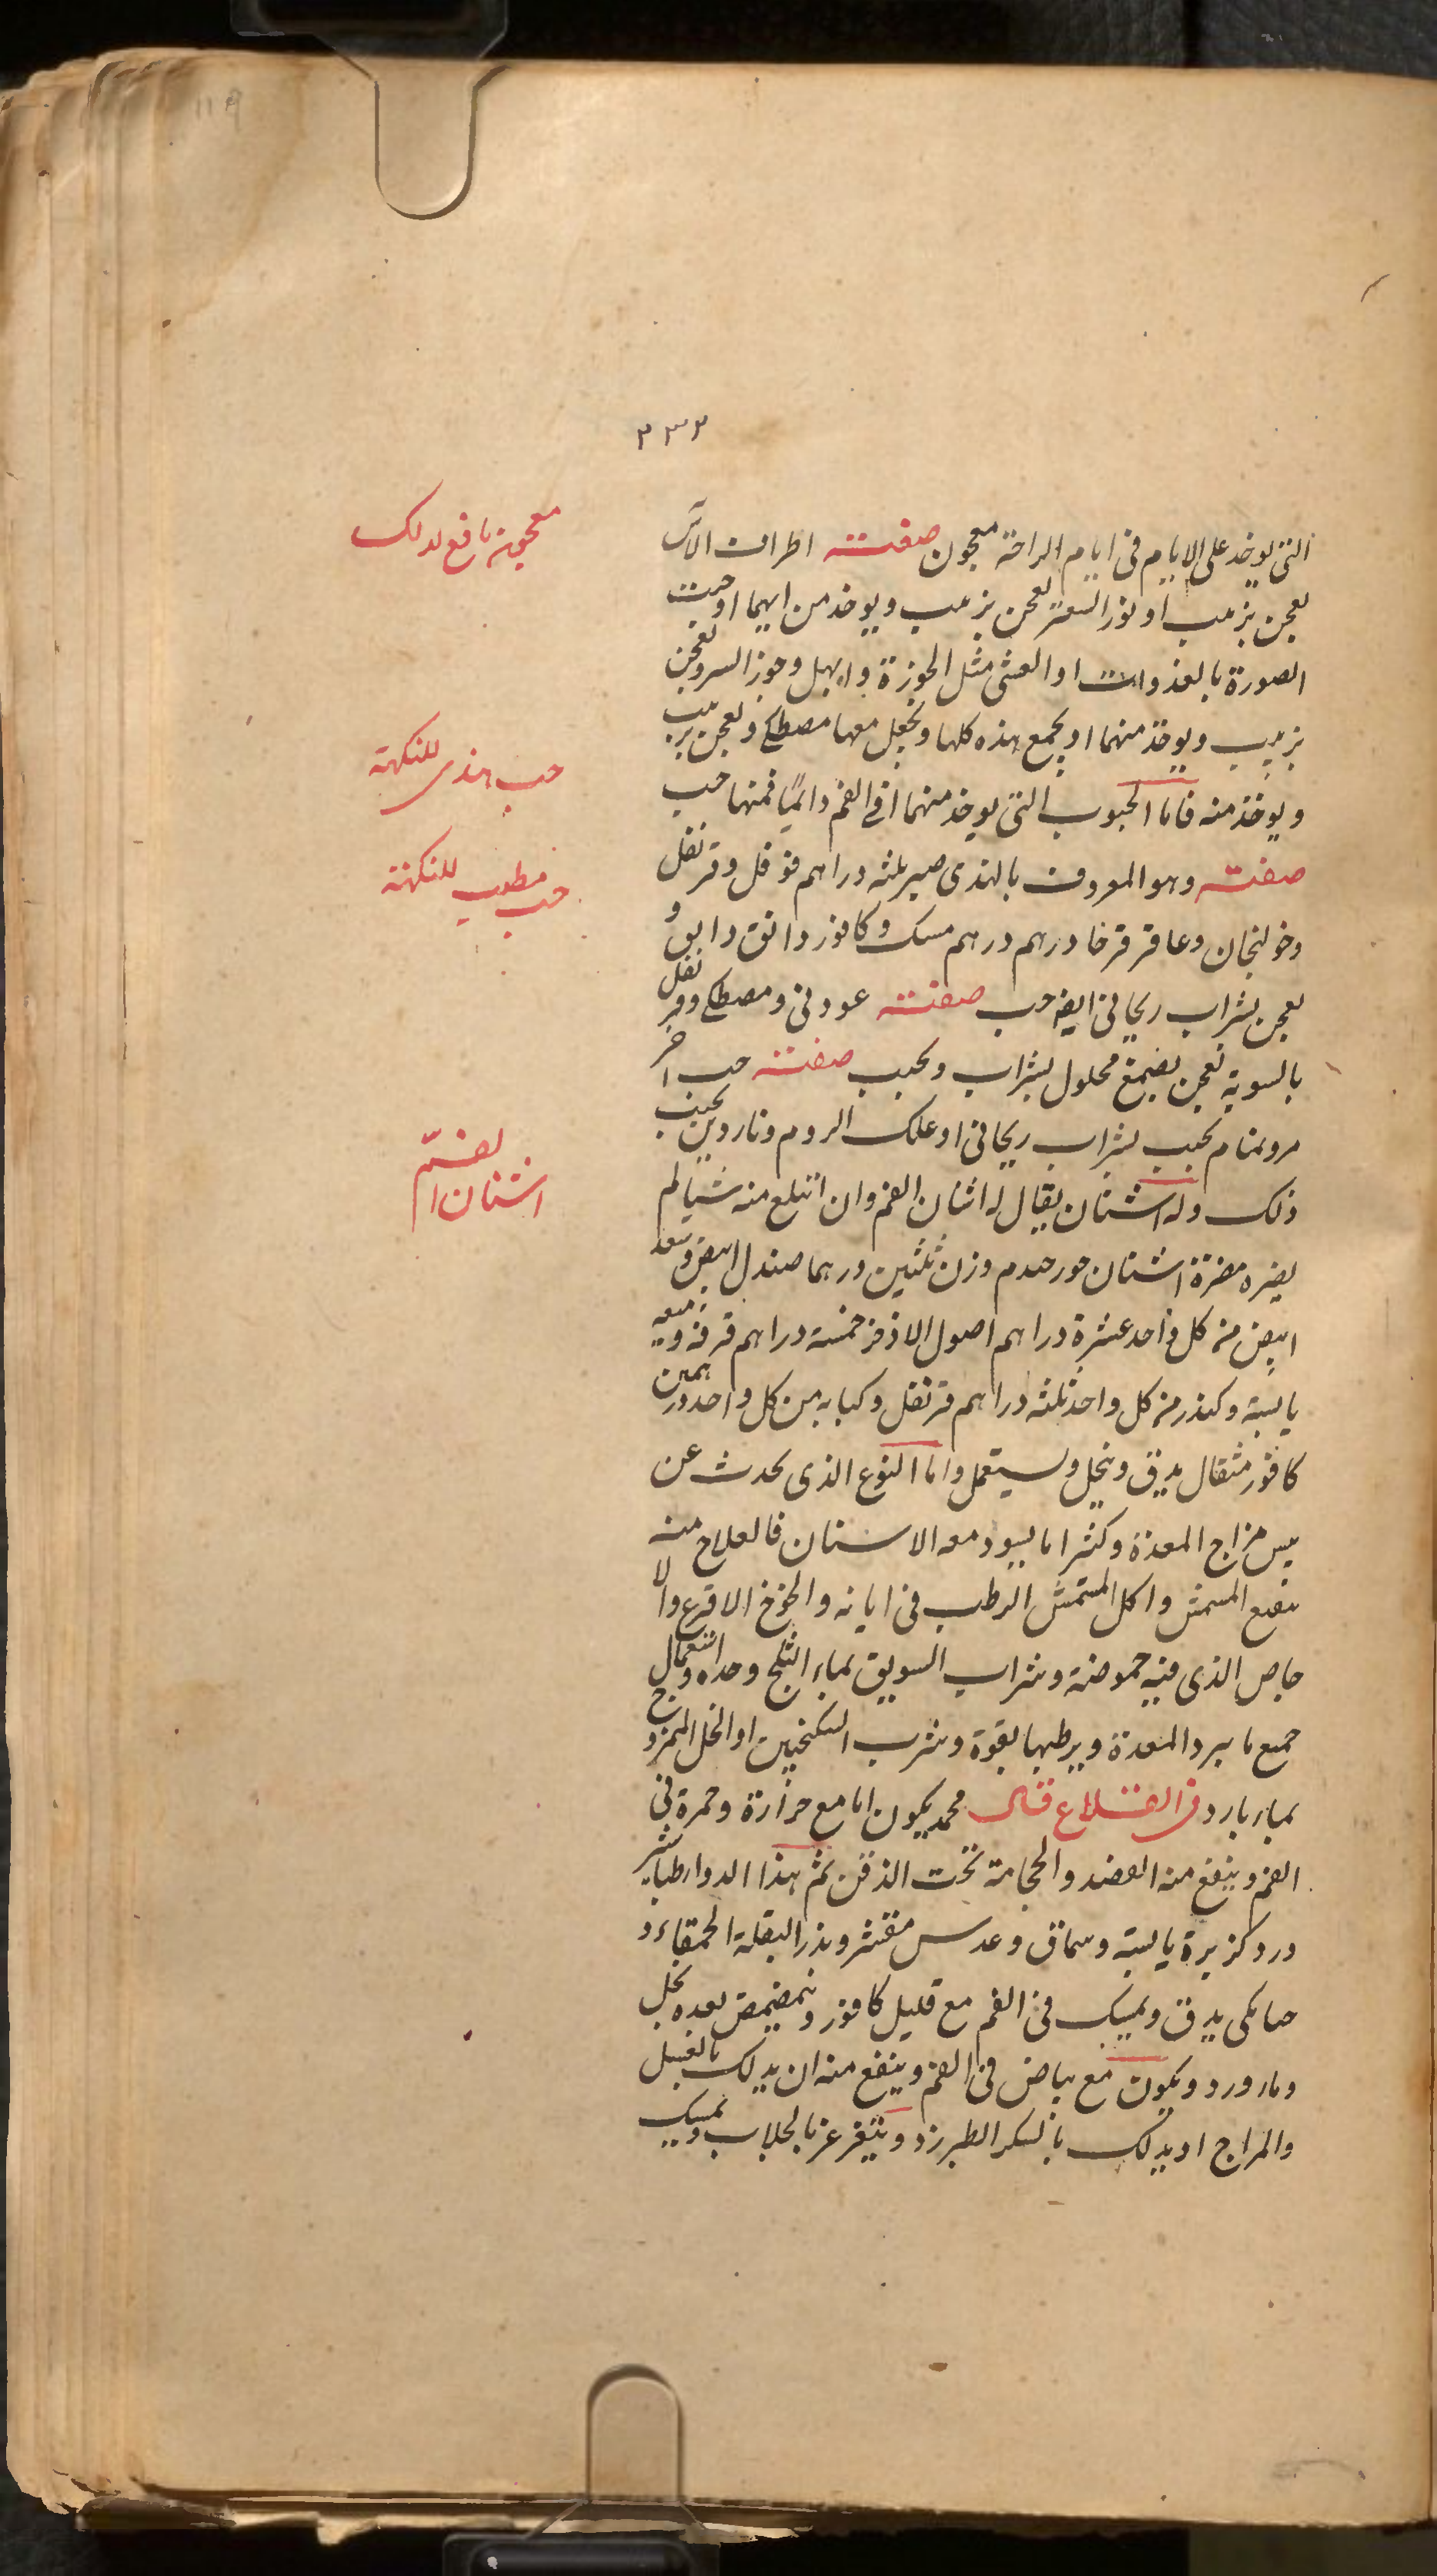 ٢٣٢
التى يوخذ على الايام فى ايام الراحة معجون صفته اطراف الآس
يعجن بزبيب او نور السعتر يعجن بزبيب ويوخذ من ايهما اوجبت
الصورة بالغذوات او العشى مثل الجوزة وابهل وجوز السرو يعجن
بزبيب ويوخذ منهما او يجمع هذه كلها ويجعل معها مصطكى ويعجن بزبيب
ويوخذ منه فاما الحبوب التى يوخذ منها فى الفم دائمًا فمنها حب
صفته وهو المعروف بالهندى صبر ثلثه دراهم فوفل وقرنفل
وخولنجان وعاقرقرحا درهم درهم مسك وكافور دانق دانق و
يعجن بشراب ريحانى ايضا حب صفته عود نى ومصطكى وقرنفل
بالسوية تعجن بصمغ محلول بشراب ويحبب صفته حب اخر
مر ونمام يحبب بشراب ريحانى او علك الروم وناردين يحبب
ذلك وله اشنان يقال له اشنان الفم وان ابتلع منه شيا لم
يضره مضرة اشنان وزن ثلثين درهما صندل ابيض وسعد
ابيض من كل واحد عشرة دراهم اصول الاذخر خمسة دراهم قرفة وميعه
يابسة وكندر من كل واحد ثلثه دراهم قرنفل وكبابه من كل واحد درهمين
كافور مثقال يدق وينخل ويستعمل واما النوع الذى يحدث عن
يبس مزاج المعدة وكثيرا ما يسود معه الاسنان فالعلاج منه
نقيع المشمش واكل المشمش الرطب فى ابانه والخوخ الاقرع والا
جاص الذى فيه حموضة وشراب السويق بماء الثلج وحده واستعمال
جميع ما يبرد المعدة ويرطبها بقوة وشرب السكنجبين او الخل الممزوج
بماء بارد فى القلاع قال محمد يكون اما مع حرارة وحمرة فى
الفم وينفع منه الفصد والحجامة تحت الذقن ثم هذا الدوا طباشير
ورد كزبرة يابسة وسماق وعدس مقشر وبزر البقلة الحمقاء و
يدق ويمسك فى الفم مع قليل كافور ويتمضمض بعده بخل
وماورد ويكون مع بياض فى الفم وينفع منه ان يدلك بالعسل
والمراج او يدلك بالسكر الطبرزد ويتغرغر بالجلاب ويمسك
معجون نافع لذلك
حب هندى للنكهة
حب مطيب للنكهة
اشنان الفم